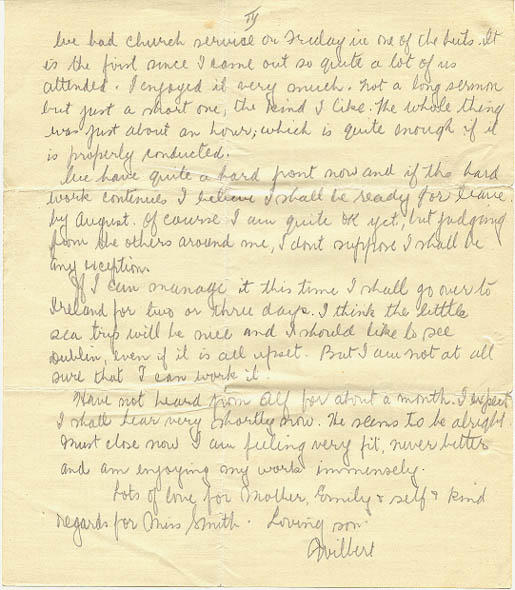 IV
We had church service on Friday in one of the huts. It
is the first since I came out so quite a lot of us
attended. I enjoyed it very much. Not a long sermon
but just a short one, the kind I like. The whole thing
was just about an hour, which is quite enough if it
is properly conducted.
We have quite a hard front now and if the hard
work continues I believe I shall be ready for leave
by August. Of course I am quite OK yet, but judging
from the others around me, I dont suppose I shall be
any exception.
If I can manage it this time I shall go over to
Ireland for two or three days. I think the little
sea trip will be nice and I should like to see
Dublin, even if it is all upset. But I am not at all
sure that I can work it.
Have not heard from Alf for about a month. I expect
I shall hear very shortly now. He seems to be alright.
Must close now I am feeling very fit, never better
and am enjoying my work immensely.
Lots of love for Mother, Emily & self & kind
regards for Miss Smith. Loving son